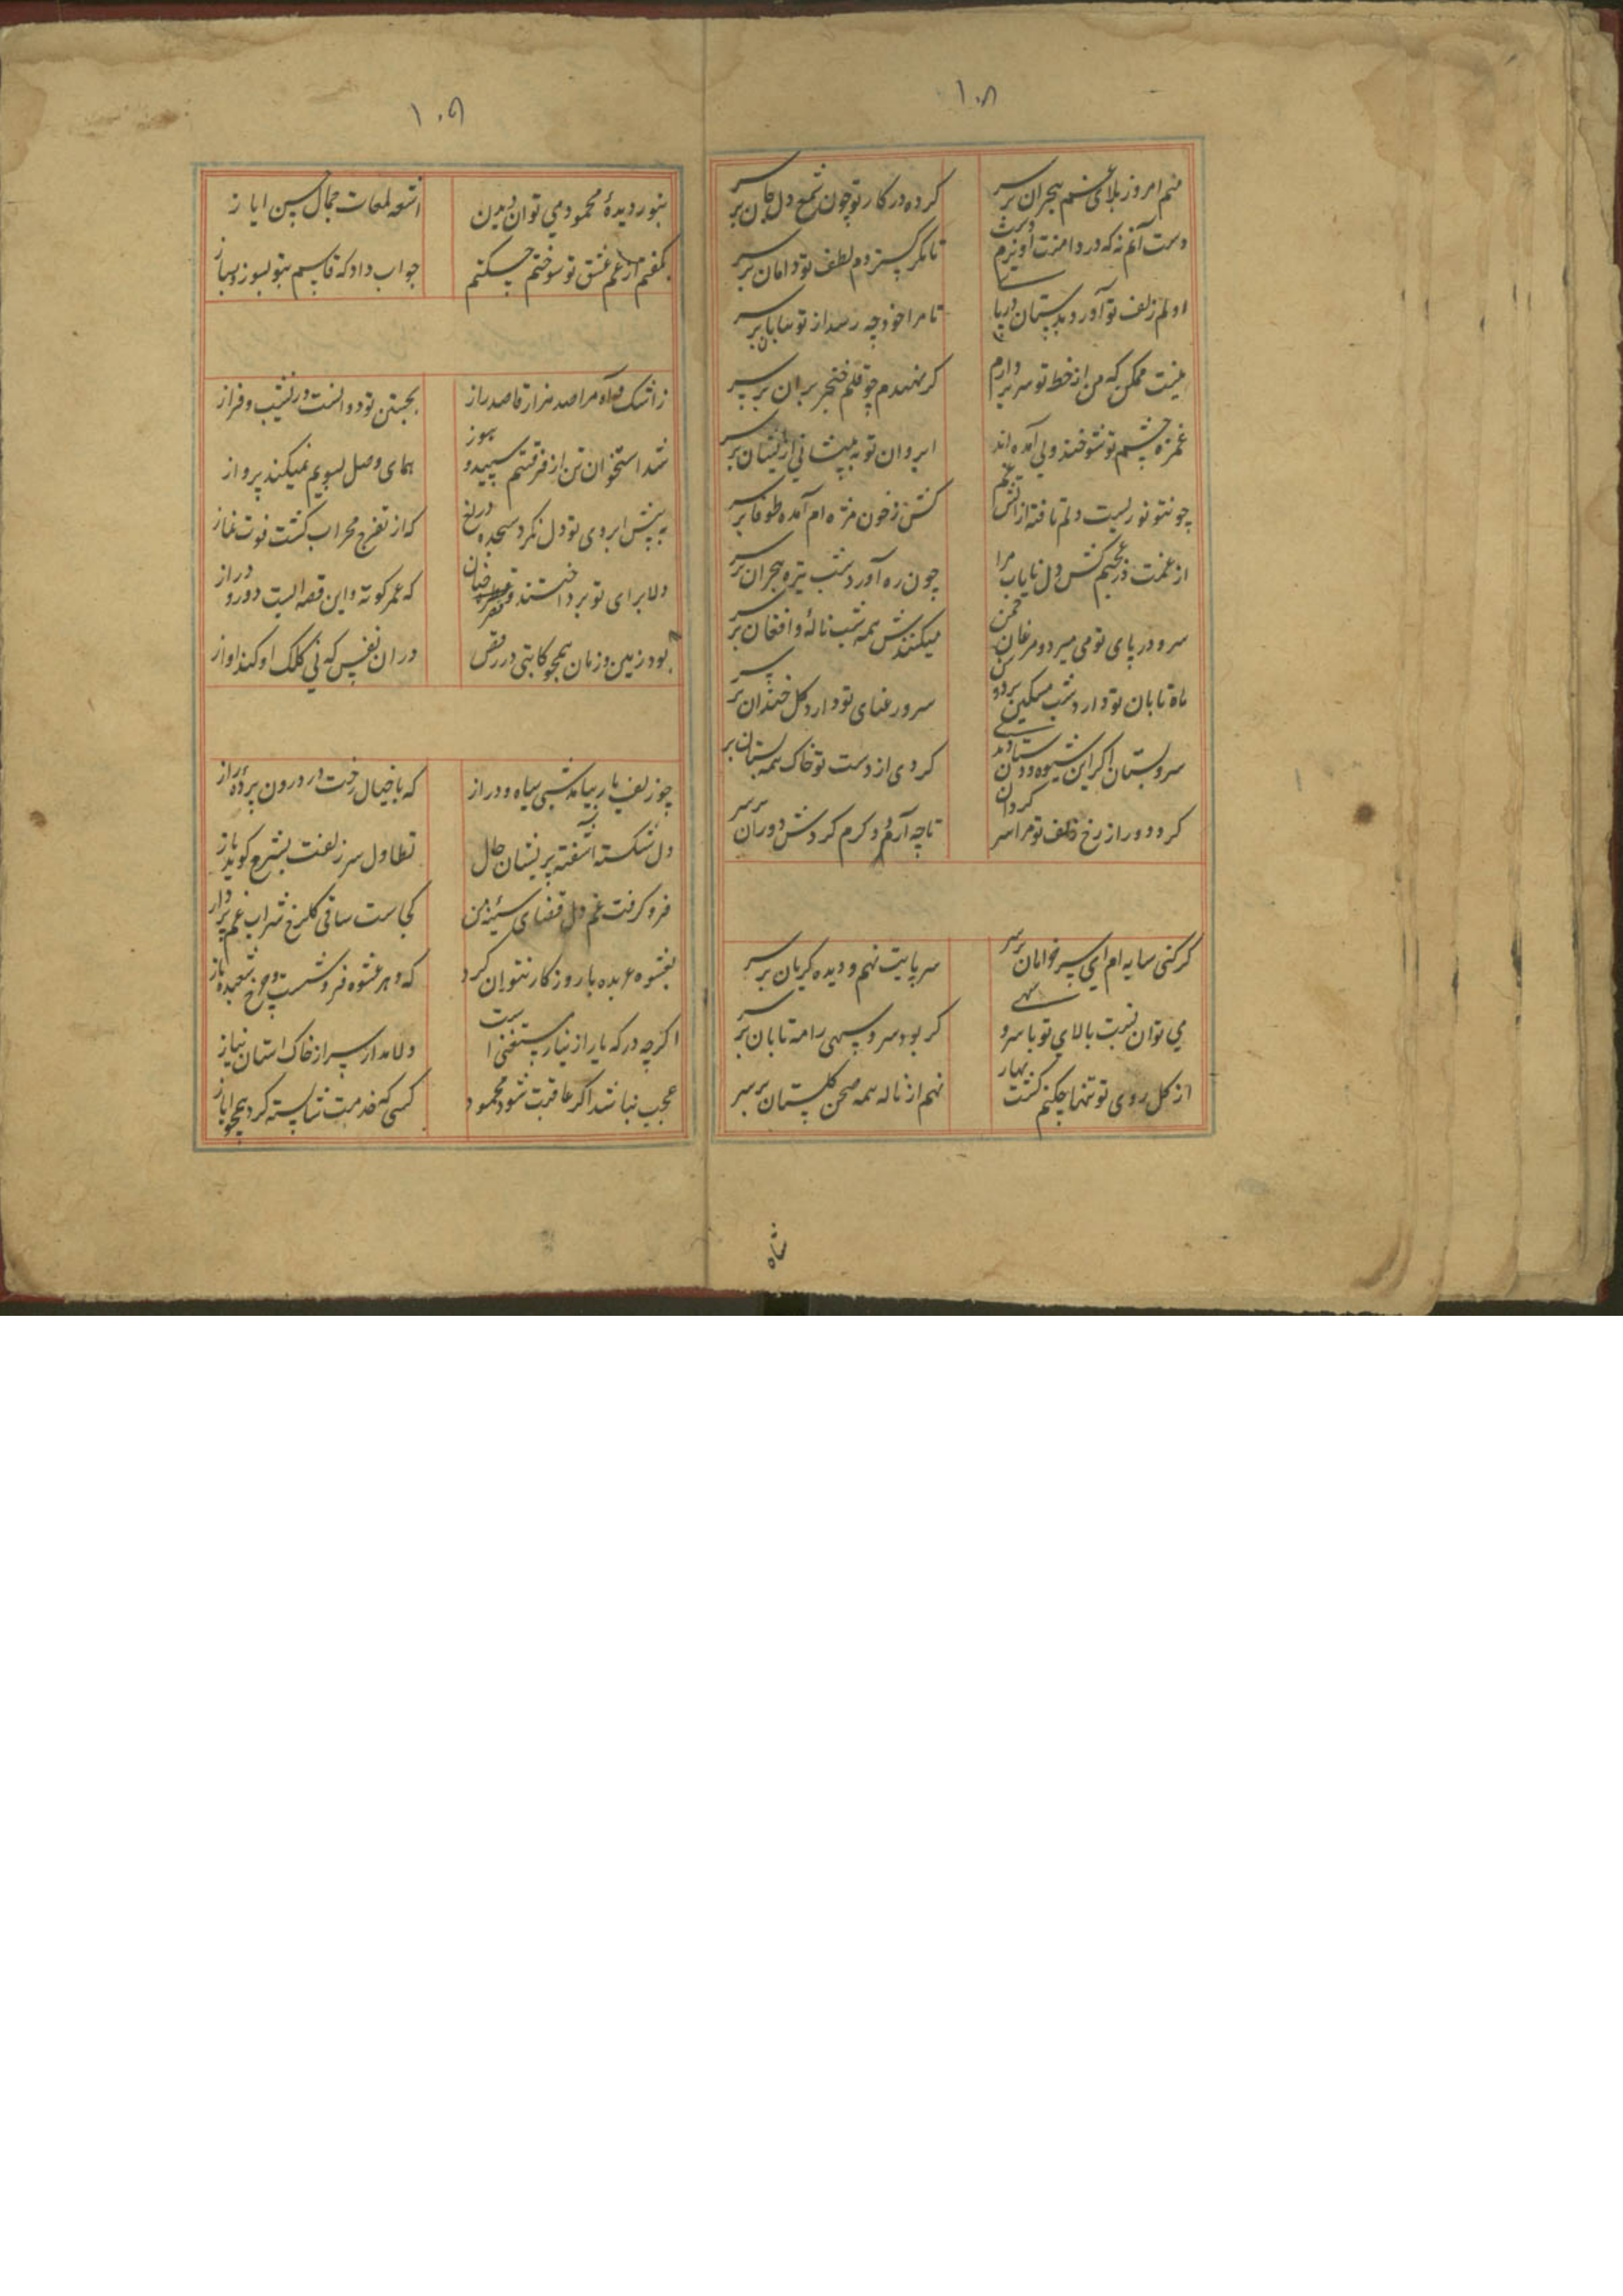 ۱۰۸
منم امروز بلای غم هجران بر سر
کرده در کار تو چون شمع دل جان بر سر
دست آنم نه که در دامنت آویزم دست
تا مکر گسترדم لطف تو دامان بر سر
اولم زلف تو آورد بدستان در پا
تا مرا خود چه رسد از تو بپایان بر سر
نیست ممکن که من از خط تو سر بردارم
کر نهندم چو قلم خنجر بران بر سر
غمزه چشم تو شوخند ولی آمده اند
ابروان تو به پیشانی ازیشان بر سر
چو تنور یست دلم تافته از آتش غم
کش ز خون مژه ام آمده طوفان بر سر
از غمت در عجبم کش دل نایاب مرا
چون ره آورد شب تیره هجران بر سر
سرو در پای تو می میرد و مرغان چمن
میکنندش همه شب ناله و افغان بر سر
ماه تابان تو دارد شب مسکین بر دوش
سرو رعنای تو دارد کل خندان بر سر
سرو بستان اگر این شیوه ودستان دید
کردی از دست تو خاک همه بستان بر سر
کرد دور از رخ زلف تو مرا سر کردان
تا چه آرد دکرم کردش دوران بر سر
کر کنی سایه ام ای سرو خرامان بر سر
سر بپایت نهم و دیده کریان بر سر
می توان نسبت بالای تو با سرو سهی
کر بود سرو سهی را مه تابان بر سر
از کل روی تو تنها چکنم کشت بهار
نهم از ناله همه صحن کلستان بر سر
شاه
۱۰۹
بنور دیدهٔ محمود می توان دیدن
اشعه لمعات جمال حسن ایاز
بکفتم از غم عشق تو سوختم چکنم
جواب داد که قاسم بتو بسوز و بساز
ز اشک و آه مرا صد هزار قاصد راز
بجستن تو دوانست در نشیب و فراز
شد استخوان تن از فرقتم سپید و هنوز
همای وصل بسویم نمیکند پرواز
به پیش ابروی تو دل نکرد سجده دریغ
که از تفرج محراب کشت فوت نماز
دلا برای تو بر داشتند
که عمر کوته و این قصه ایست دور و دراز
بود زمین و زمان همچو کاتبی در رقص
در ان نفس که نی کلک او کند اواز
چو زلف یار بیامد شبی سیاه و دراز
که با خیال رخت در درون پرده راز
دل شکسته آشفته پریشان حال
تطاول سر زلفت بشرح کوید باز
فرو کرفت غم دل فضای سینه من
کجاست ساقی کلرخ شراب غم پرداز
بعشوه عربده با روزکار نتوان کرد
که دهر عشوه فروشست و چرخ شعبده باز
اکرچه درکه یار از نیاز مستغنی است
دلا مدار سر از خاک استان نیاز
عجب نباشد اکر عاقبت شود محمود
کسی که خدمت شایسته کرد همچو ایاز